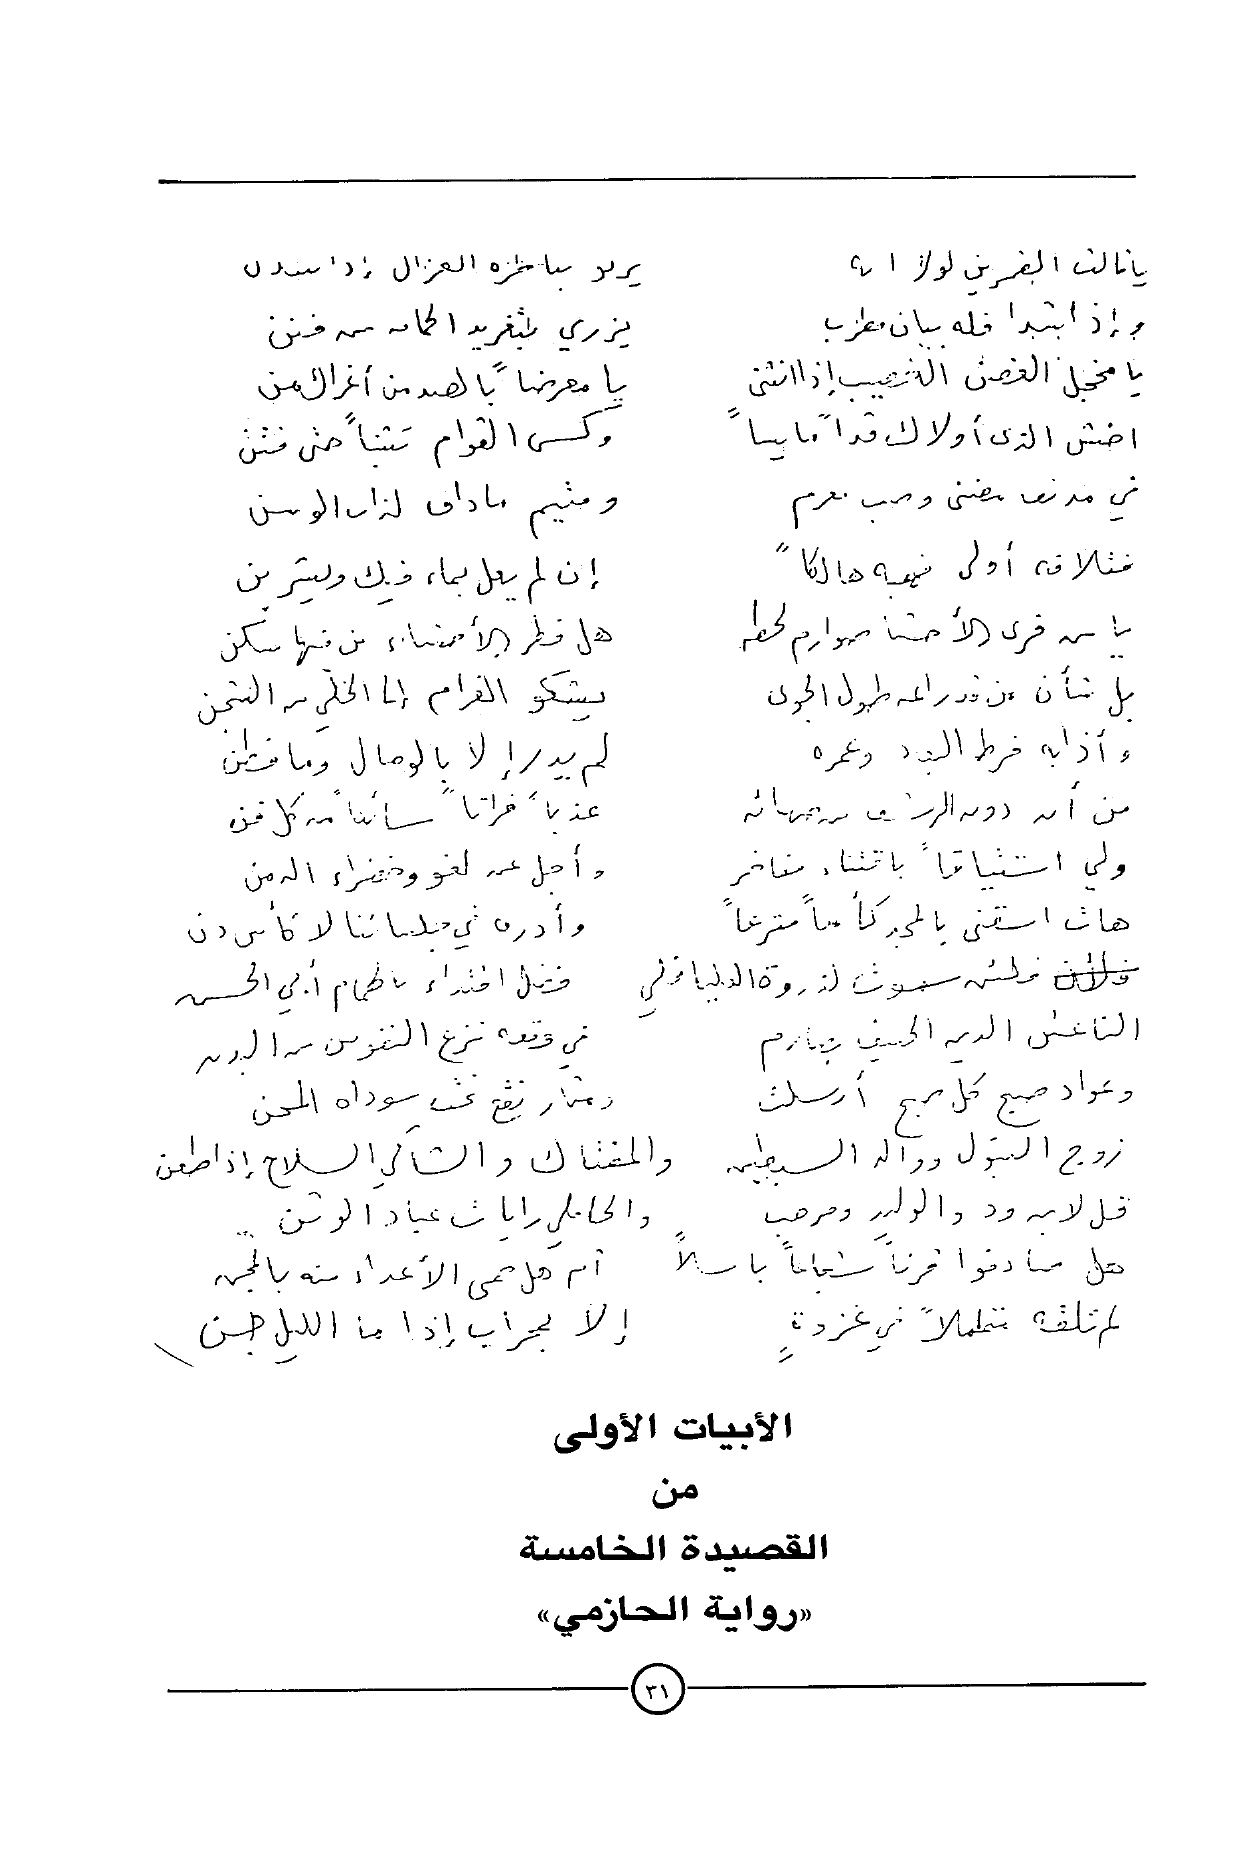 يا ثالث القمرين لولا أنه يرنو بناظره الغزال إذا شدن
وإذا ابتدا فله بيان مطرب يزري بتغريد الحمائم من فنن
يا مخجل الغصن الخصيب إذا انثنى يا معرضاً بالصد من أغراك من
اخش الذي أولاك قداً مايساً وكسى القوام تثنياً حتى فتن
في مدنف مضنى وصب مغرم ومتيم ما ذاق لذات الوسن
فتلافه أولى فمهجته هالكاً إن لم يعل بماء فيك ويشربن
يا من فرى الأحشا صوارم لحظه هل فطر الأحشاء من فيها سكن
بل شأن من قد راعه طول الجوى يشكو الغرام إلى الخلي من الشجن
وأذابه فرط البعد وعمره لم يدر إلا بالوصال وما فطن
من أين دون الرشف عذباً فراتاً سائغاً من كل فن
ولي اشتياقاً باقتناء مفاخر وأجل عن لغو وخضراء الدمن
هات اسقني بالمجد كأساً مترعاً وأدره في جلسائنا لا كأس دن
فلئن سموت لذروة العليا فلي فضل اقتداء بالهمام أبي الحسن
الناعش الدين الحنيف بصارم في وقعه نزع النفوس من البدن
وعواد صبح كل أرسلت ومثار نقع تحت سوداه المحن
زوج البتول ووالد السبطين والمفتاك والشاكي السلاح إذا طعن
قل لابن ود والوليد ومرحب والحاملي رايات عباد الوثن
هل صادفوا قرناً شجاعاً باسلاً أم هل حمى الأعداء منه بالمجن
لم تلقه متطفلاً في غزوةٍ إلا بمحراب إذا ما الليل جن
الأبيات الأولى
من
القصيدة الخامسة
«رواية الحازمي»
٣١